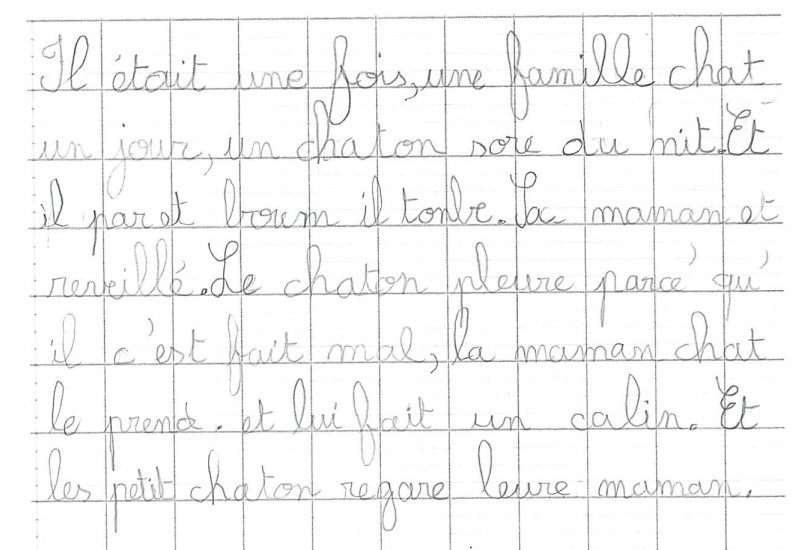 Il était une fois, une famille chat
un jour, un chaton sore du nit. Et
il par et boum il tonbe. Sa maman et
reveillé. Le chaton pleure parce' qu'
il c'est fait mal, la maman chat
le prend. et lui fait un calin. Et
les petit chaton regare leure maman.